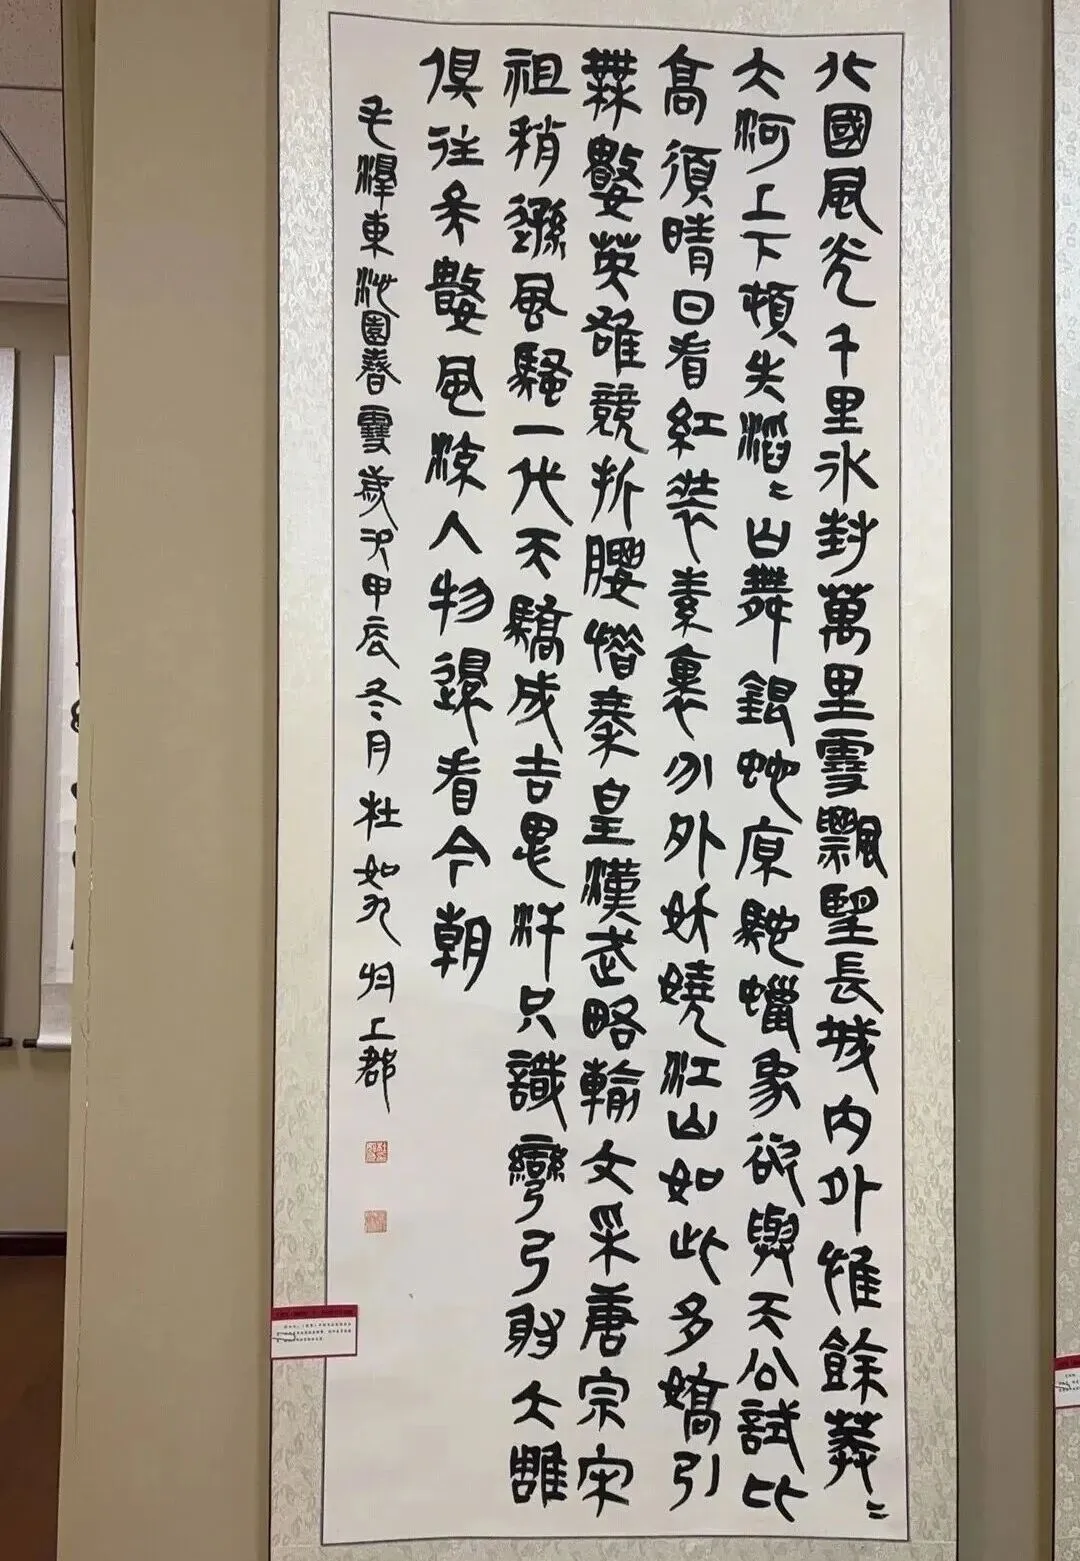 北國風光千里冰封萬里雪飄望長城内外惟餘莽〻
大河上下頓失滔〻山舞銀蛇原馳蠟象欲與天公試比
高須晴日看紅裝素裹分外妖嬈江山如此多嬌引
無數英雄競折腰惜秦皇漢武略輸文采唐宗宋
祖稍遜風騷一代天驕成吉思汗只識彎弓射大雕
俱往矣數風流人物還看今朝
毛澤東沁園春雪歲次甲辰冬月杜如九上郡